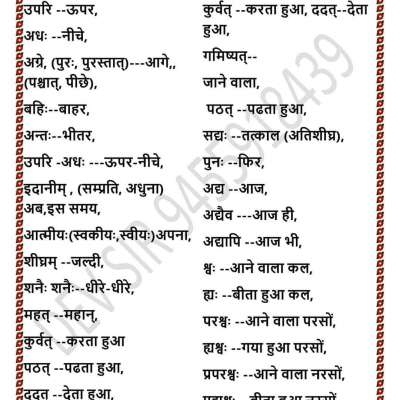 उपरि --ऊपर,
अधः --नीचे,
अग्रे, (पुरः, पुरस्तात्)---आगे,,
(पश्चात्, पीछे),
बहिः--बाहर,
अन्तः--भीतर,
उपरि -अधः ---ऊपर-नीचे,
इदानीम् , (सम्प्रति, अधुना)
अब,इस समय,
आत्मीयः(स्वकीयः,स्वीयः)अपना,
शीघ्रम् --जल्दी,
शनैः शनैः--धीरे-धीरे,
महत् --महान्,
कुर्वत् --करता हुआ
पठत् --पढता हुआ,
ददत् --देता हुआ,
कुर्वत् --करता हुआ, ददत्--देता
हुआ,
गमिष्यत्--
जाने वाला,
पठत् --पढता हुआ,
सद्यः --तत्काल (अतिशीघ्र),
पुनः --फिर,
अद्य --आज,
अद्यैव ---आज ही,
अद्यापि --आज भी,
श्वः --आने वाला कल,
ह्यः --बीता हुआ कल,
परश्वः --आने वाला परसों,
ह्यश्वः --गया हुआ परसों,
प्रपरश्वः --आने वाला नरसों,
DEV SIR 9455918439